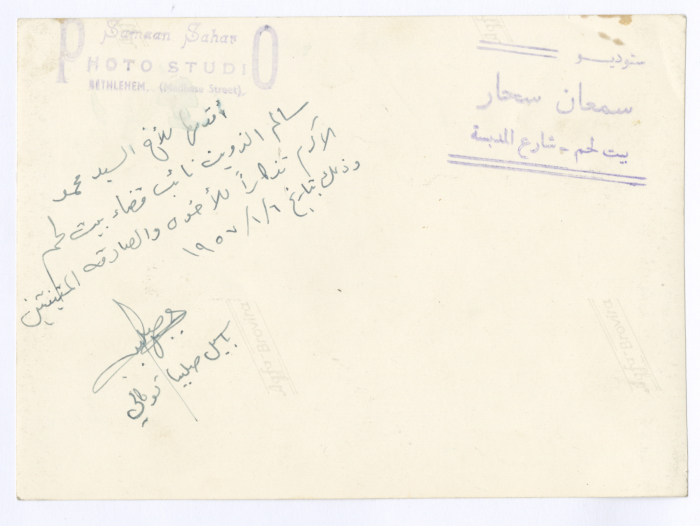 Samaan Sahar
PHOTO STUDIO
BETHLEHEM. (Street).
ستوديو
سمعان سحار
بيت لحم - شارع المدبسة
أقدمها للأخ السيد محمد
سالم الذويب نائب قضاء بيت لحم
الأكرم تذكاراً للأخوة والصداقة المتينتين
وذلك بتاريخ ١٩٥٧/١/٦
صليبا
Agfa-Brovira
Agfa-Brovira